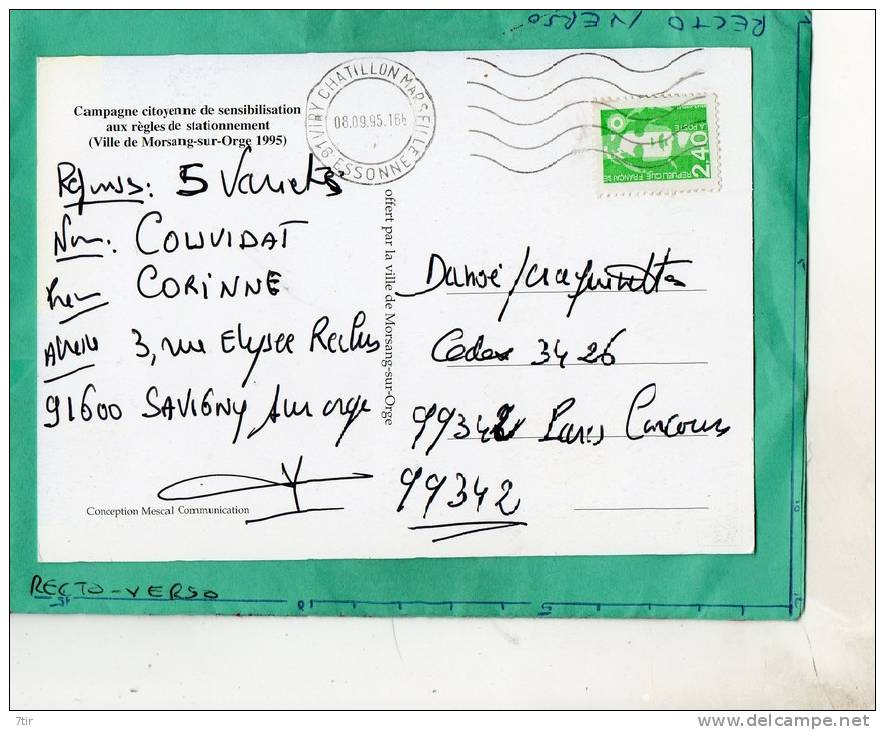 RECTO / VERSO
Campagne citoyenne de sensibilisation
aux règles de stationnement
(Ville de Morsang-sur-Orge 1995)
VIRY CHATILLON MARSEILLE
08.09.95.16h
91 ESSONNE
2,40
LA POSTE
REPUBLIQUE FRANÇAISE
5 Variétés
Nom: COUVIDAT
CORINNE
3, rue Elysée Reclus
91600 SAVIGNY sur orge
Conception Mescal Communication
offert par la ville de Morsang-sur-Orge
Danoé /
Cedex 3426
99342 Paris Concours
99342
RECTO-VERSO
7tir
delcampe.net